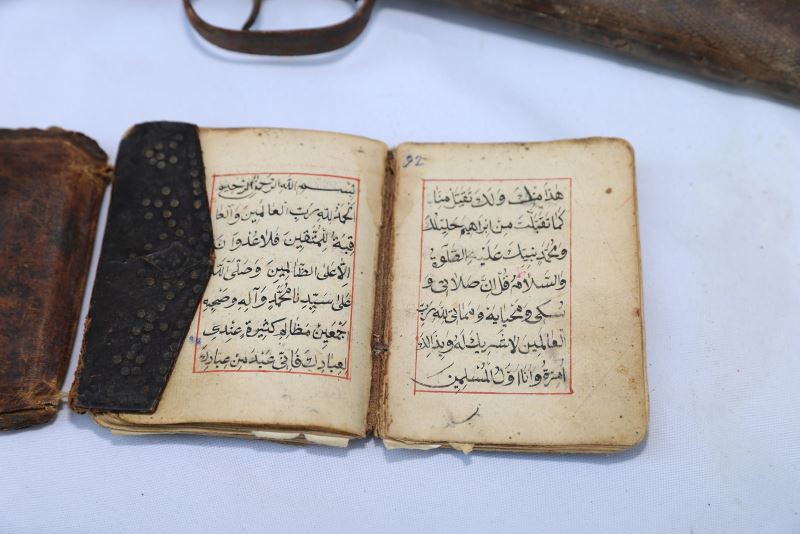 92
هذا منك ولك تقبل منا
كما تقبلت من ابراهيم خليلك
ومحمد نبيك عليه الصلوة
والسلام قل ان صلاتي و
نسكي ومحيايه ومماتي لله رب
العالمين لا شريك له وبذالك
امرة وانا اول المسلمين
بسم الله الرحمن الرحيم
الحمد لله رب العالمين والعا
قبة للمتقين فلا عدوان
الا على الظالمين وصلى الله
على سيدنا محمد وآله وصحبه
جمعين مظالم كثيرة عندي
لعبادك فاني عبد من عبادك